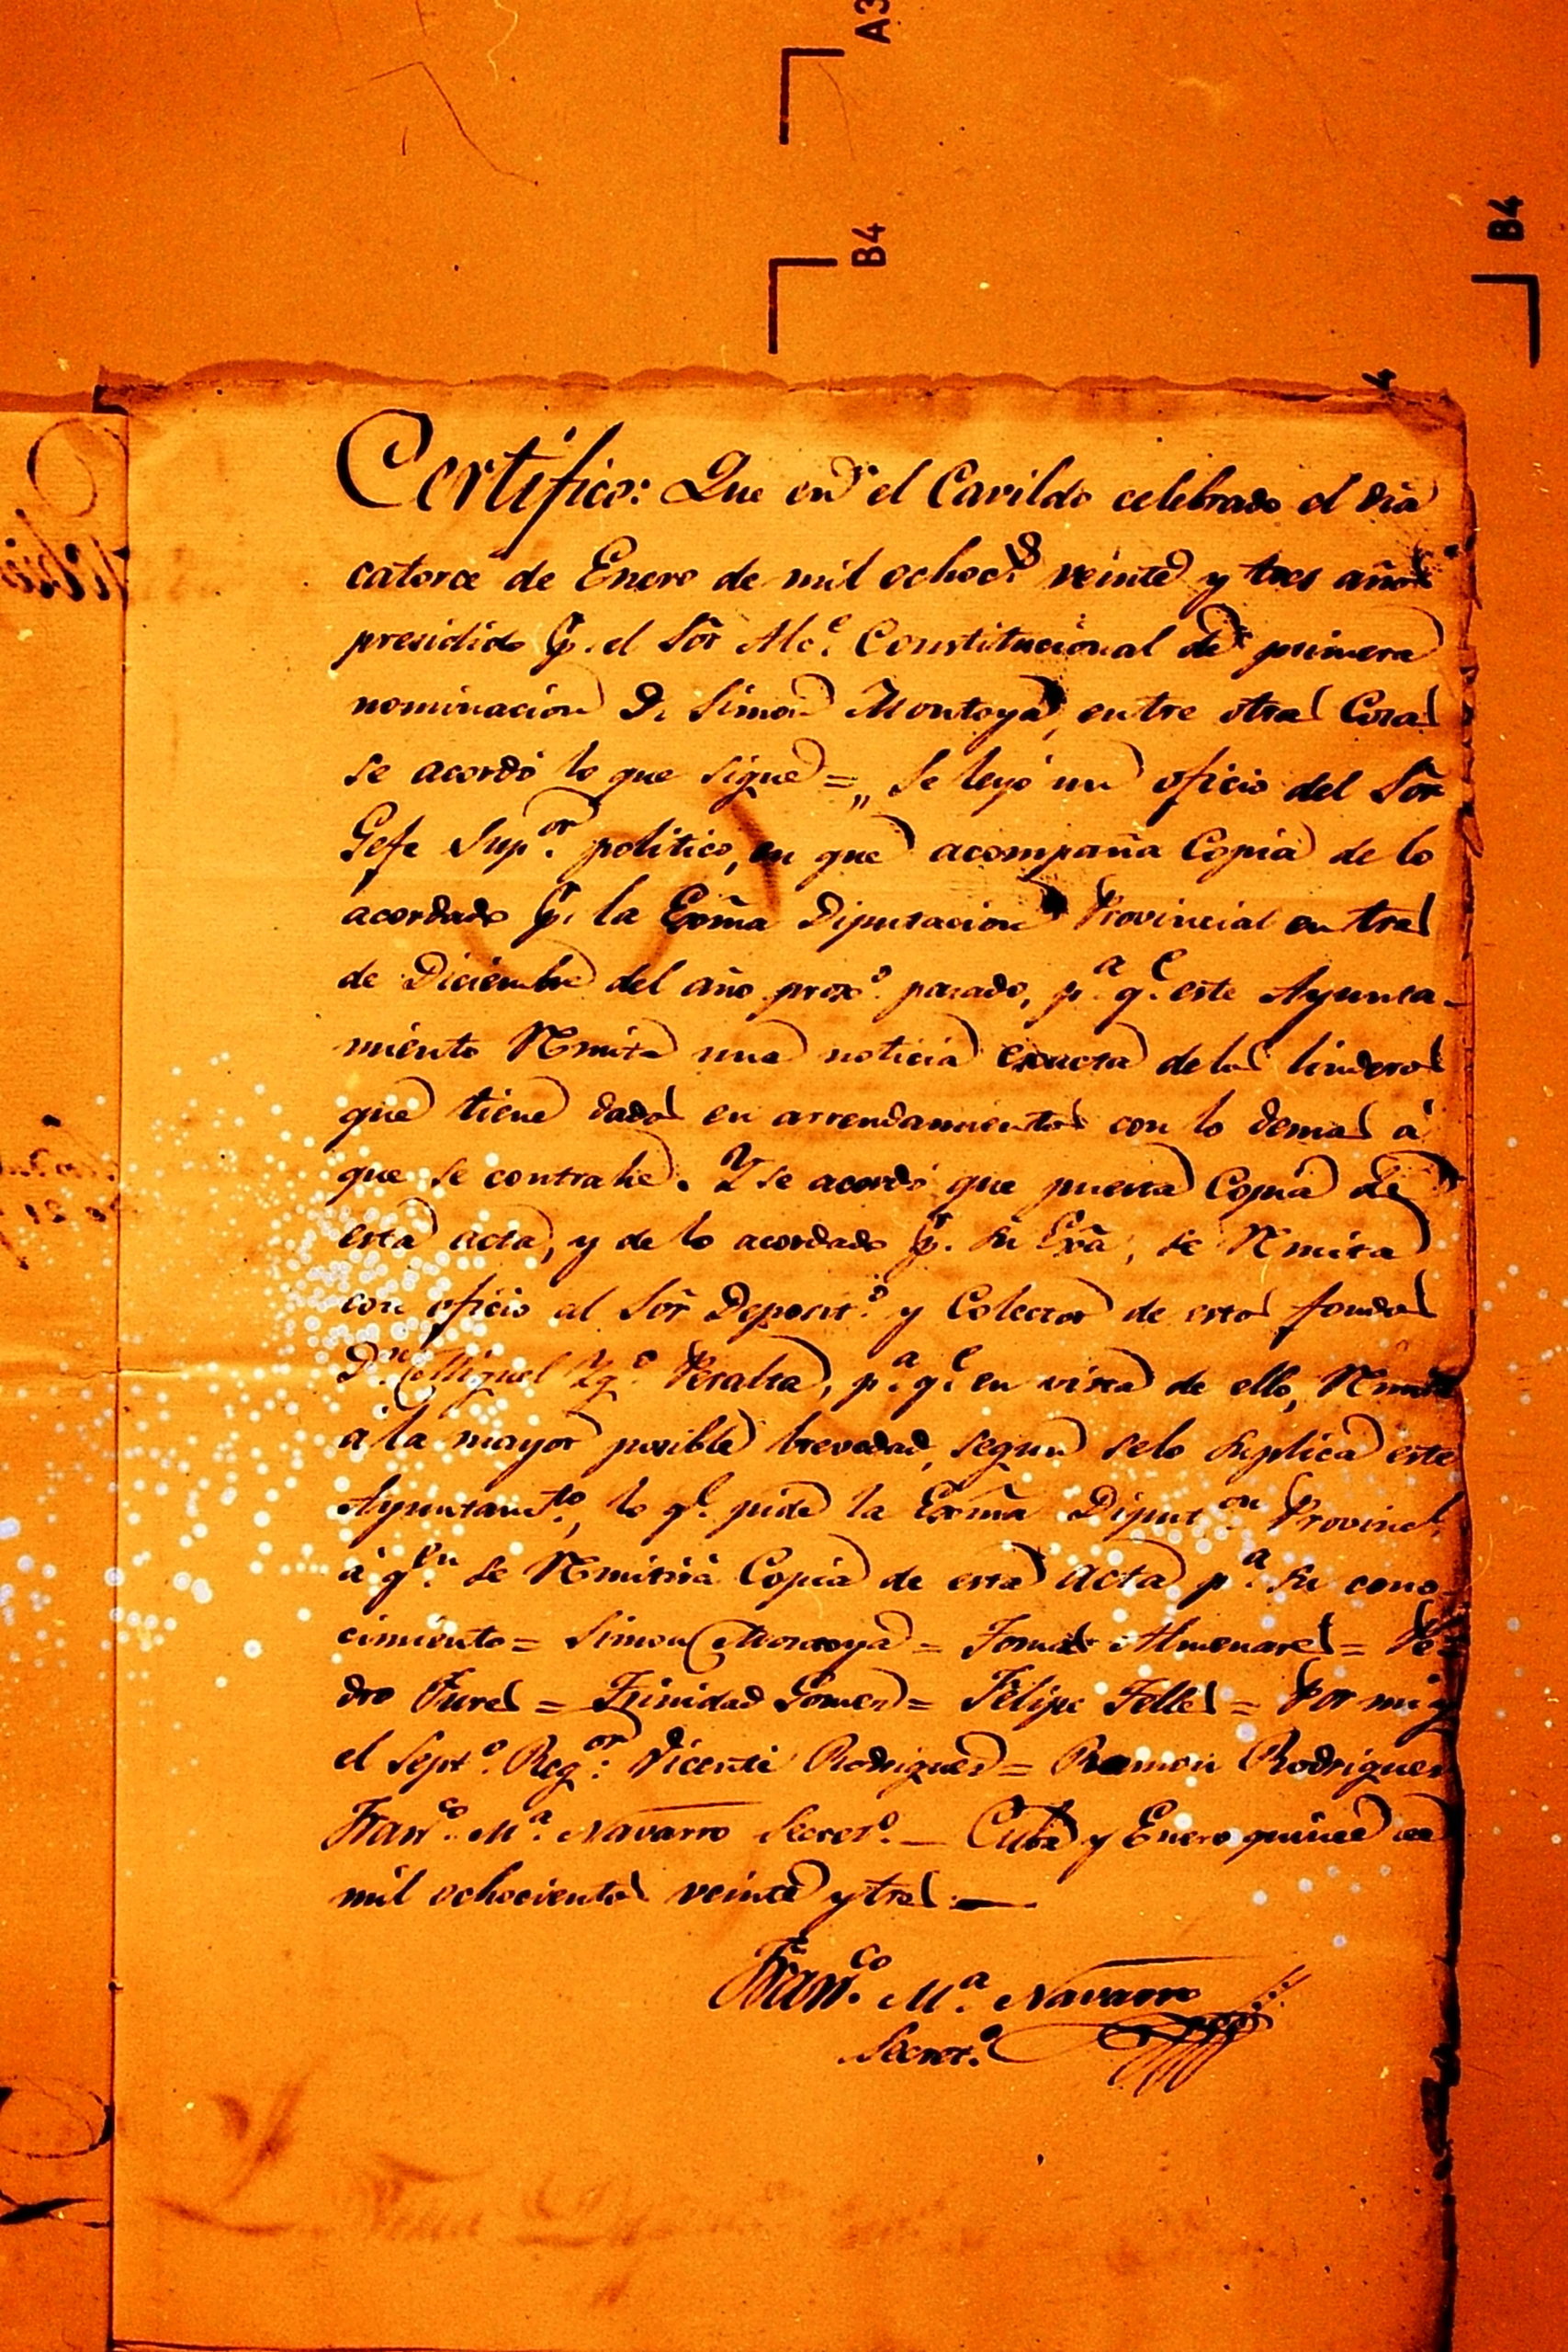 A3
B4
B4
Certifico: Que en el Cavildo celebrado el dia
catorce de Enero de mil ochoc.s veinte y tres años
presidido p. el Sōr Alc.e Constitucional de primera
nominacion D. Simon Montoya, entre otras Cosas
se acordó lo que sigue = „ Se leyó un oficio del Sōr
Gefe Sup.or politico, en que acompaña Copia de lo
acordado p. la Exma Diputacion Provincial en tres
de Diciembre del año prox.o pasado, p.a q.e este Ayunta-
miento Remita una noticia exacta de los linderos
que tiene dados en arrendamientos con lo demas á
que se contrahe. Y se acordó que puesta Copia de
esta acta, y de lo acordado p. Su Exa, se Remita
con oficio al Sōr Deposit.o y Colector de estos fondos
D.n Miguel Yg.o Peralta, p.a q.e en vista de ello, Remita
á la mayor posible brevedad, segun selo Suplica este
Ayuntam.to, lo q.e pide la Exma Diput.on Provincl.
á q.en se Remitirá Copia de esta Acta p.a su cono-
cimiento = Simon Montoya = Tomas Almenares = Pe-
dro Jures = Trinidad Gomez = Felipe Telles = Por mi y
el Sept.o Reg.or Vicente Rodriguez = Ramon Rodriguez
Fran.co M.a Navarro Secret.o — Cuba y Enero quince de
mil ochocientos veinte y tres. —
Fran.co M.a Navarro
Secret.o